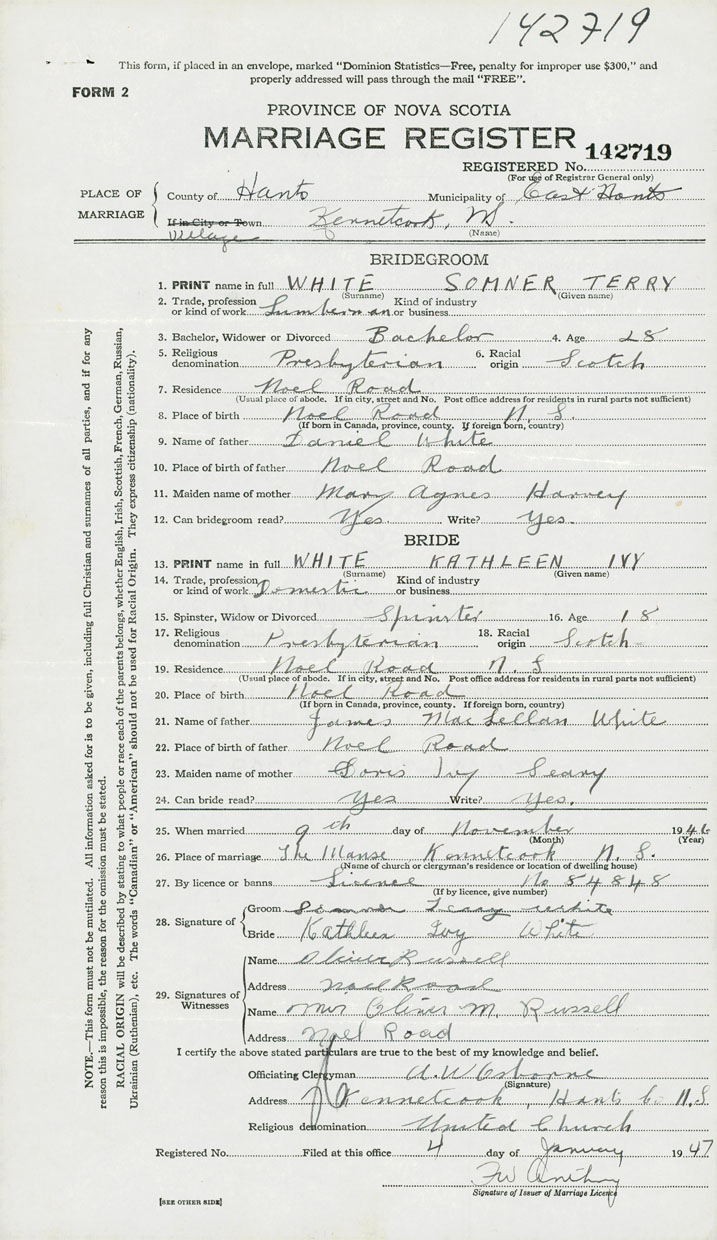 142719
This form, if placed in an envelope, marked "Dominion Statistics—Free, penalty for improper use $300," and
properly addressed will pass through the mail "FREE".
FORM 2
PROVINCE OF NOVA SCOTIA
MARRIAGE REGISTER 142719
REGISTERED No.
(For use of Registrar General only)
PLACE OF MARRIAGE County of Hants Municipality of East Hants
If in City or Town Kennetcook, N.S.
Village (Name)
BRIDEGROOM
1. PRINT name in full WHITE SOMNER TERRY
(Surname) (Given name)
2. Trade, profession or kind of work Lumberman Kind of industry or business
3. Bachelor, Widower or Divorced Bachelor 4. Age 28
5. Religious denomination Presbyterian 6. Racial origin Scotch
7. Residence Noel Road
(Usual place of abode. If in city, street and No. Post office address for residents in rural parts not sufficient)
8. Place of birth Noel Road N.S.
(If born in Canada, province, county. If foreign born, country)
9. Name of father Daniel White
10. Place of birth of father Noel Road
11. Maiden name of mother Mary Agnes Harvey
12. Can bridegroom read? Yes Write? Yes.
BRIDE
13. PRINT name in full WHITE KATHLEEN IVY
(Surname) (Given name)
14. Trade, profession or kind of work Domestic Kind of industry or business
15. Spinster, Widow or Divorced Spinster 16. Age 18
17. Religious denomination Presbyterian 18. Racial origin Scotch
19. Residence Noel Road N.S
(Usual place of abode. If in city, street and No. Post office address for residents in rural parts not sufficient)
20. Place of birth Noel Road
(If born in Canada, province, county. If foreign born, country)
21. Name of father James MacLellan White
22. Place of birth of father Noel Road
23. Maiden name of mother Doris Ivy Seary
24. Can bride read? Yes Write? Yes.
25. When married 9th day of November 1946
(Month) (Year)
26. Place of marriage The Manse Kennetcook N.S.
(Name of church or clergyman's residence or location of dwelling house)
27. By licence or banns License No 84848
(If by licence, give number)
28. Signature of Groom Somner Terry White
Bride Kathleen Ivy White
29. Signatures of Witnesses
Name Oliver Russell
Address Noel Road
Name Mrs Oliver M. Russell
Address Noel Road
I certify the above stated particulars are true to the best of my knowledge and belief.
Officiating Clergyman A.W Osborne
(Signature)
Address Kennetcook, Hants Co N.S
Religious denomination United Church
Registered No. Filed at this office 4 day of January 1947
FW Anthony
Signature of Issuer of Marriage Licence
[SEE OTHER SIDE]
NOTE.—This form must not be mutilated. All information asked for is to be given, including full Christian and surnames of all parties, and if for any
reason this is impossible, the reason for the omission must be stated.
RACIAL ORIGIN will be described by stating to what people or race each of the parents belongs, whether English, Irish, Scottish, French, German, Russian,
Ukrainian (Ruthenian), etc. The words "Canadian" or "American" should not be used for Racial Origin. They express citizenship (nationality).